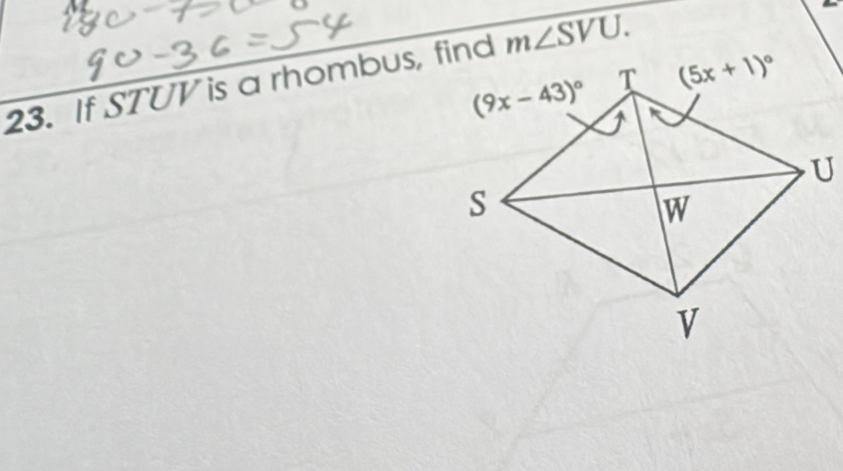 90-36=54
23. If STUV is a rhombus, find m∠SVU.
(9x − 43)°
T
(5x + 1)°
S
U
W
V